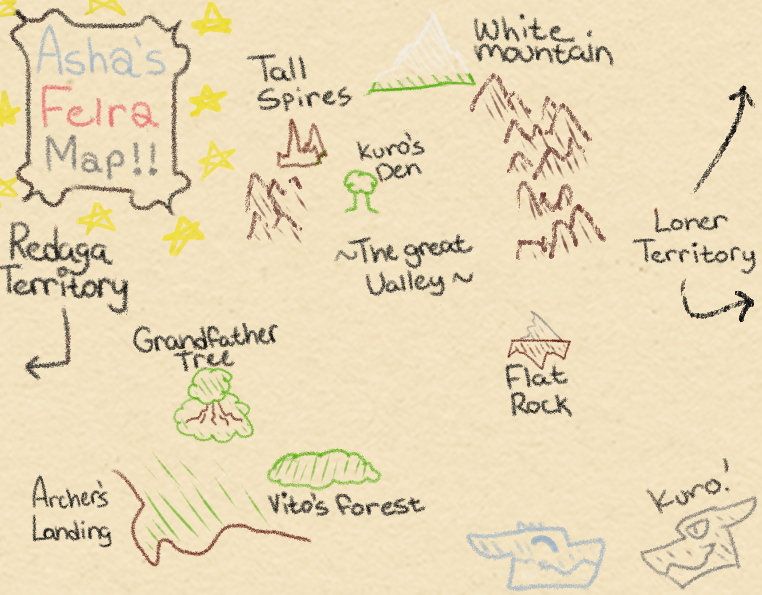 Asha's
Felra
Map!!
White
mountain
Tall
Spires
Kuro's
Den
~The great
Valley~
Lorer
Territory
Redaga
Territory
Grandfather
Tree
Flat
Rock
Archer's
Landing
Vito's forest
Kuro!